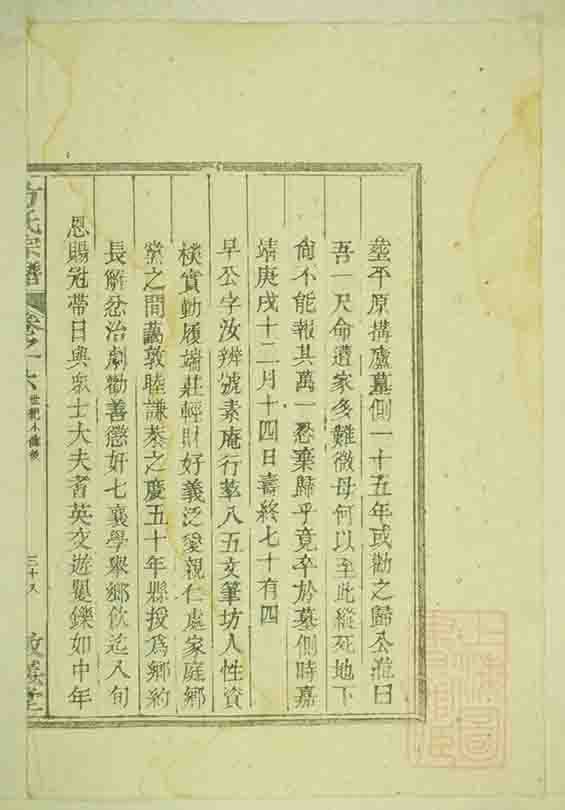 塋平原搆廬墓側一十五年或勸之歸公泣曰
吾一尺命遺家多難微母何以至此縱死地下
尙不能報其萬一忍棄歸乎竟卒於墓側時嘉
靖庚戌十二月十四日壽終七十有四
早公字汝辨號素庵行萃八五文筆坊人性資
樸實動履端莊輕財好義泛愛親仁處家庭鄉
黨之間藹敦睦謙恭之慶五十年縣授爲鄉約
長解忿治劇勸善懲奸七襄學舉鄉飲迄八旬
恩賜冠帶日與衆士大夫耆英交遊矍鑠如中年
方氏宗譜
卷之十六
世紀小傳後
三十八
敦義堂